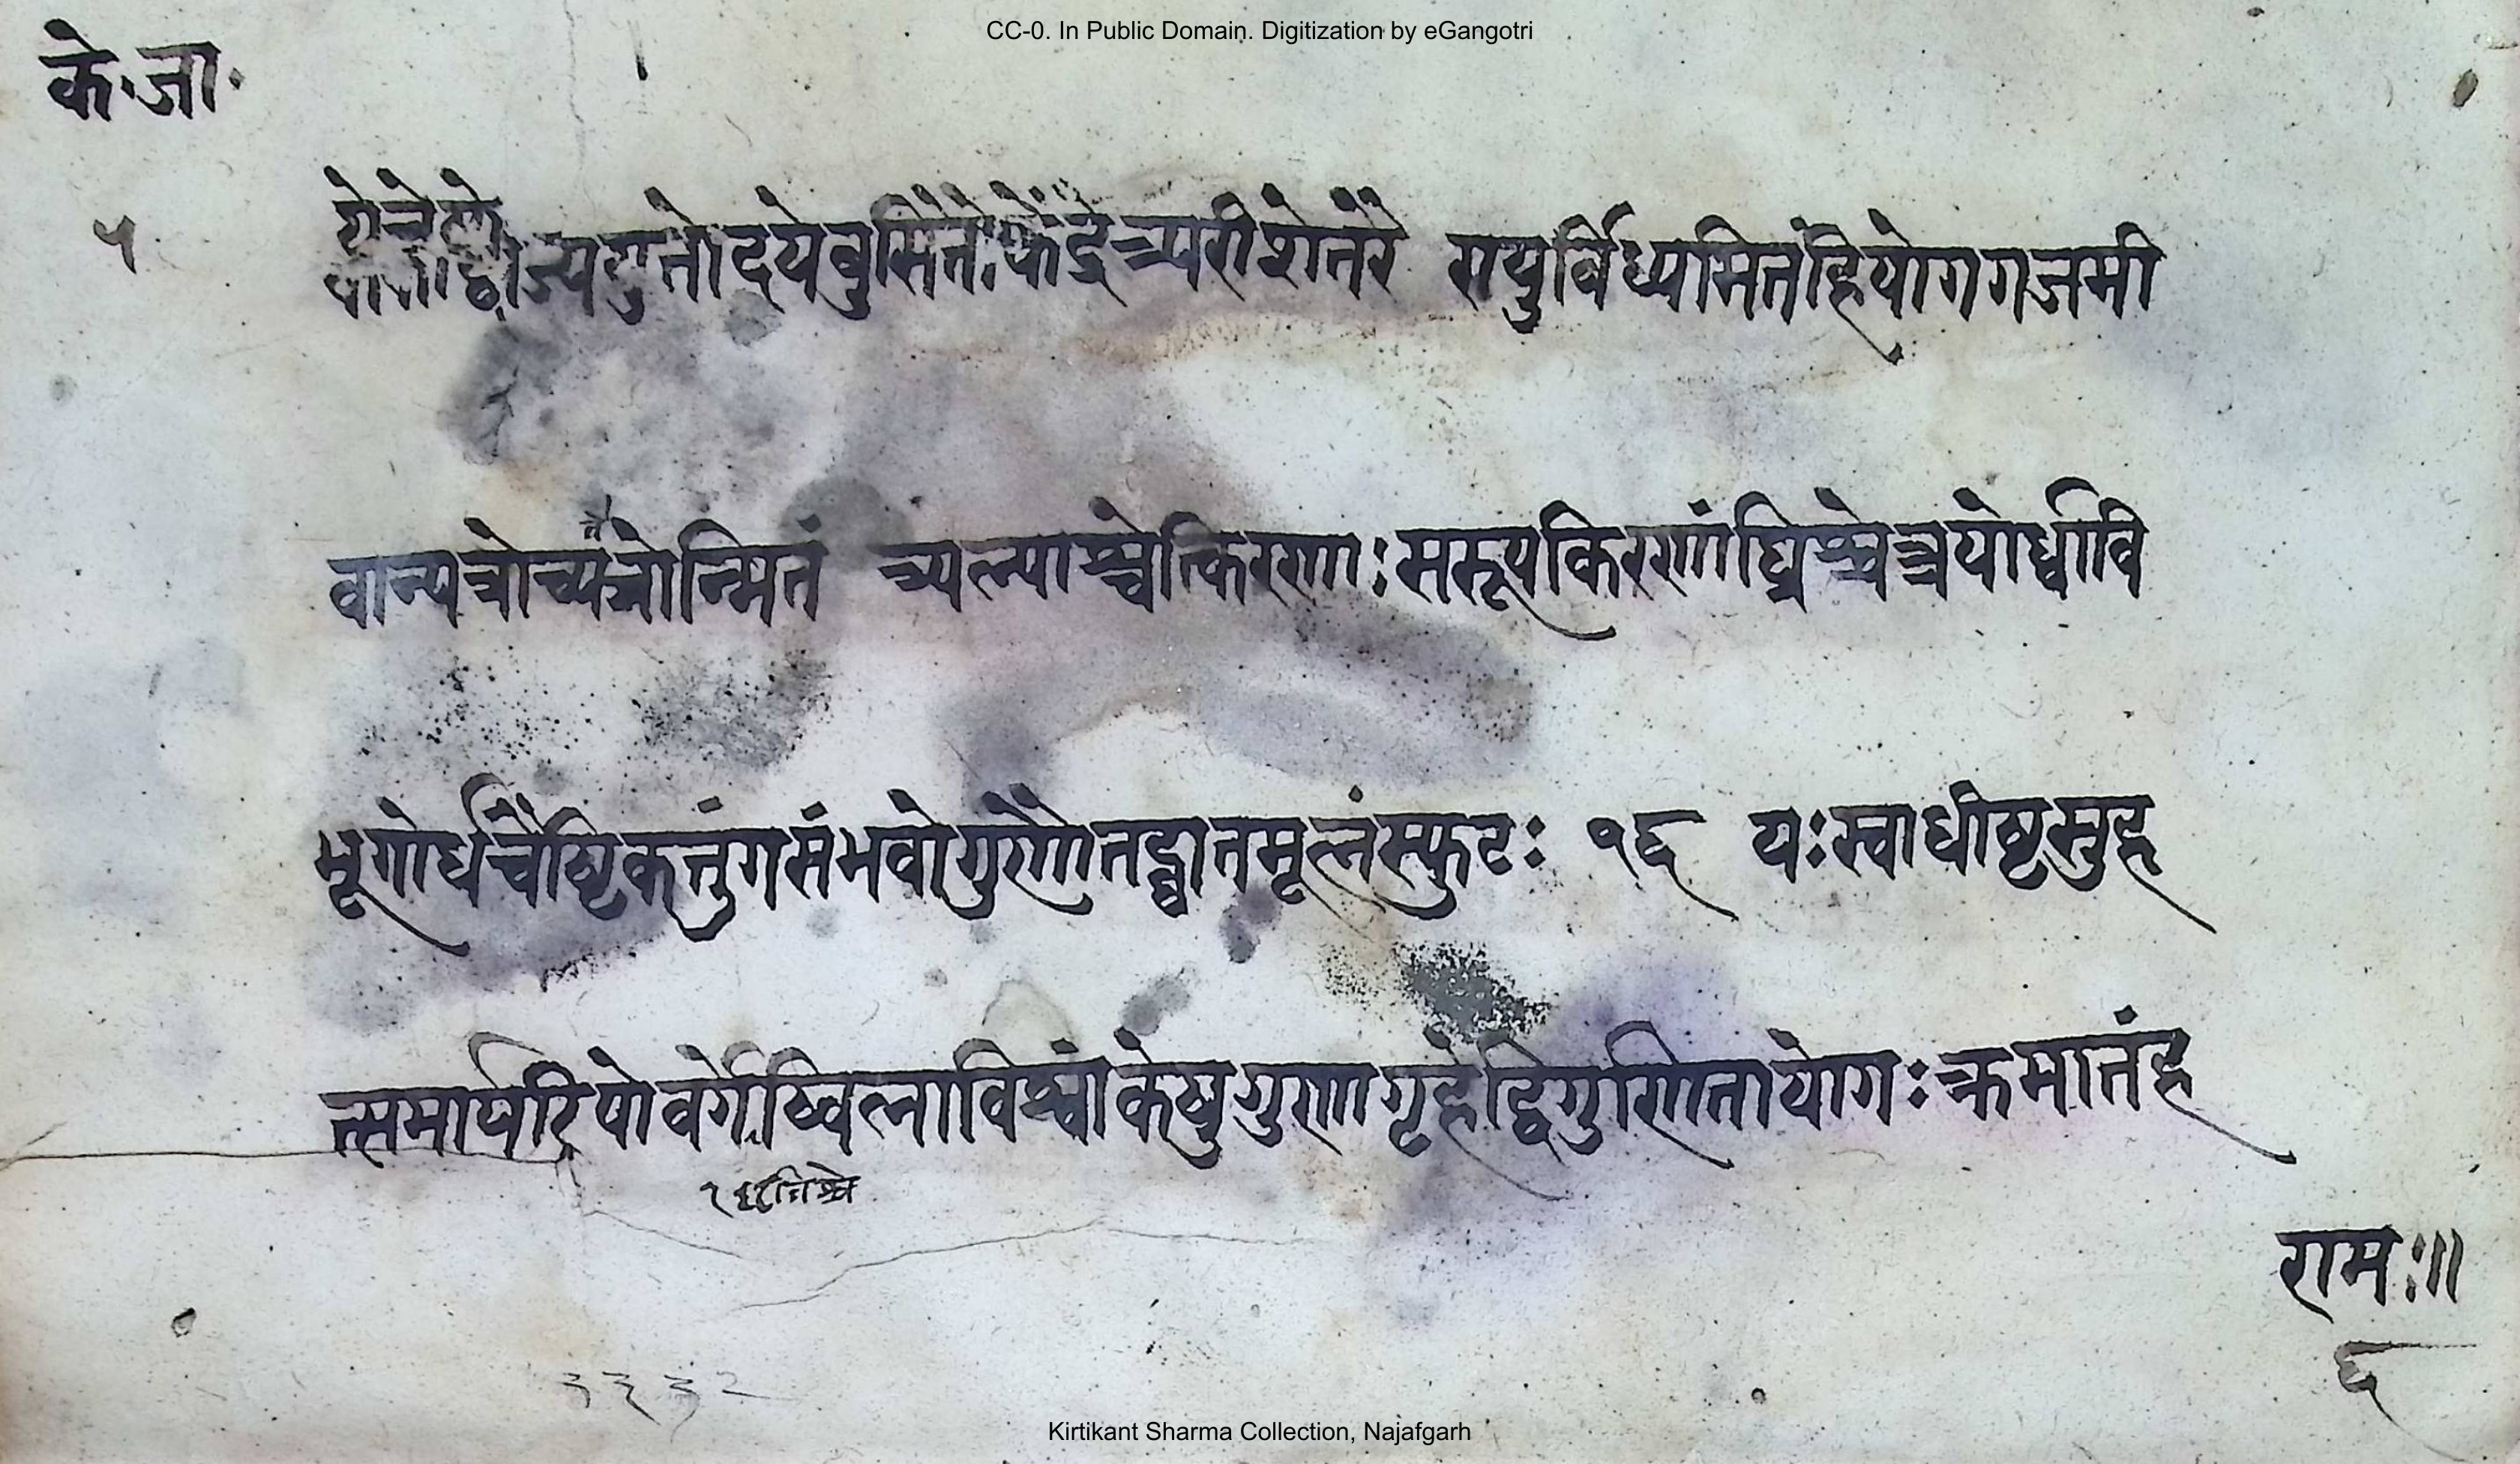 CC-0. In Public Domain. Digitization by eGangotri
के॰जा॰
५
ज्ययुतोदयेवु केंद्रेच्यरीशेतरे रायुर्विध्यमितंहियोगगजमी
वान्यत्रोच्य त्रोन्मितं च्यत्न्याश्चेत्किरणाः सरूपकिरणांघ्रिश्चेन्नयोर्ध्वावि
भूगोर्धचैष्टिकतुंगसंभवोगुणोतद्घातमूलंस्फुटः १६ यःस्वाधीष्टसुहृ
त्समार्यरिपोवर्गेष्विलाविश्वांकेषुगुणागृहेद्विगुणितायोगःक्रमात्तंहृ
रामः॥
६
३३३२
Kirtikant Sharma Collection, Najafgarh